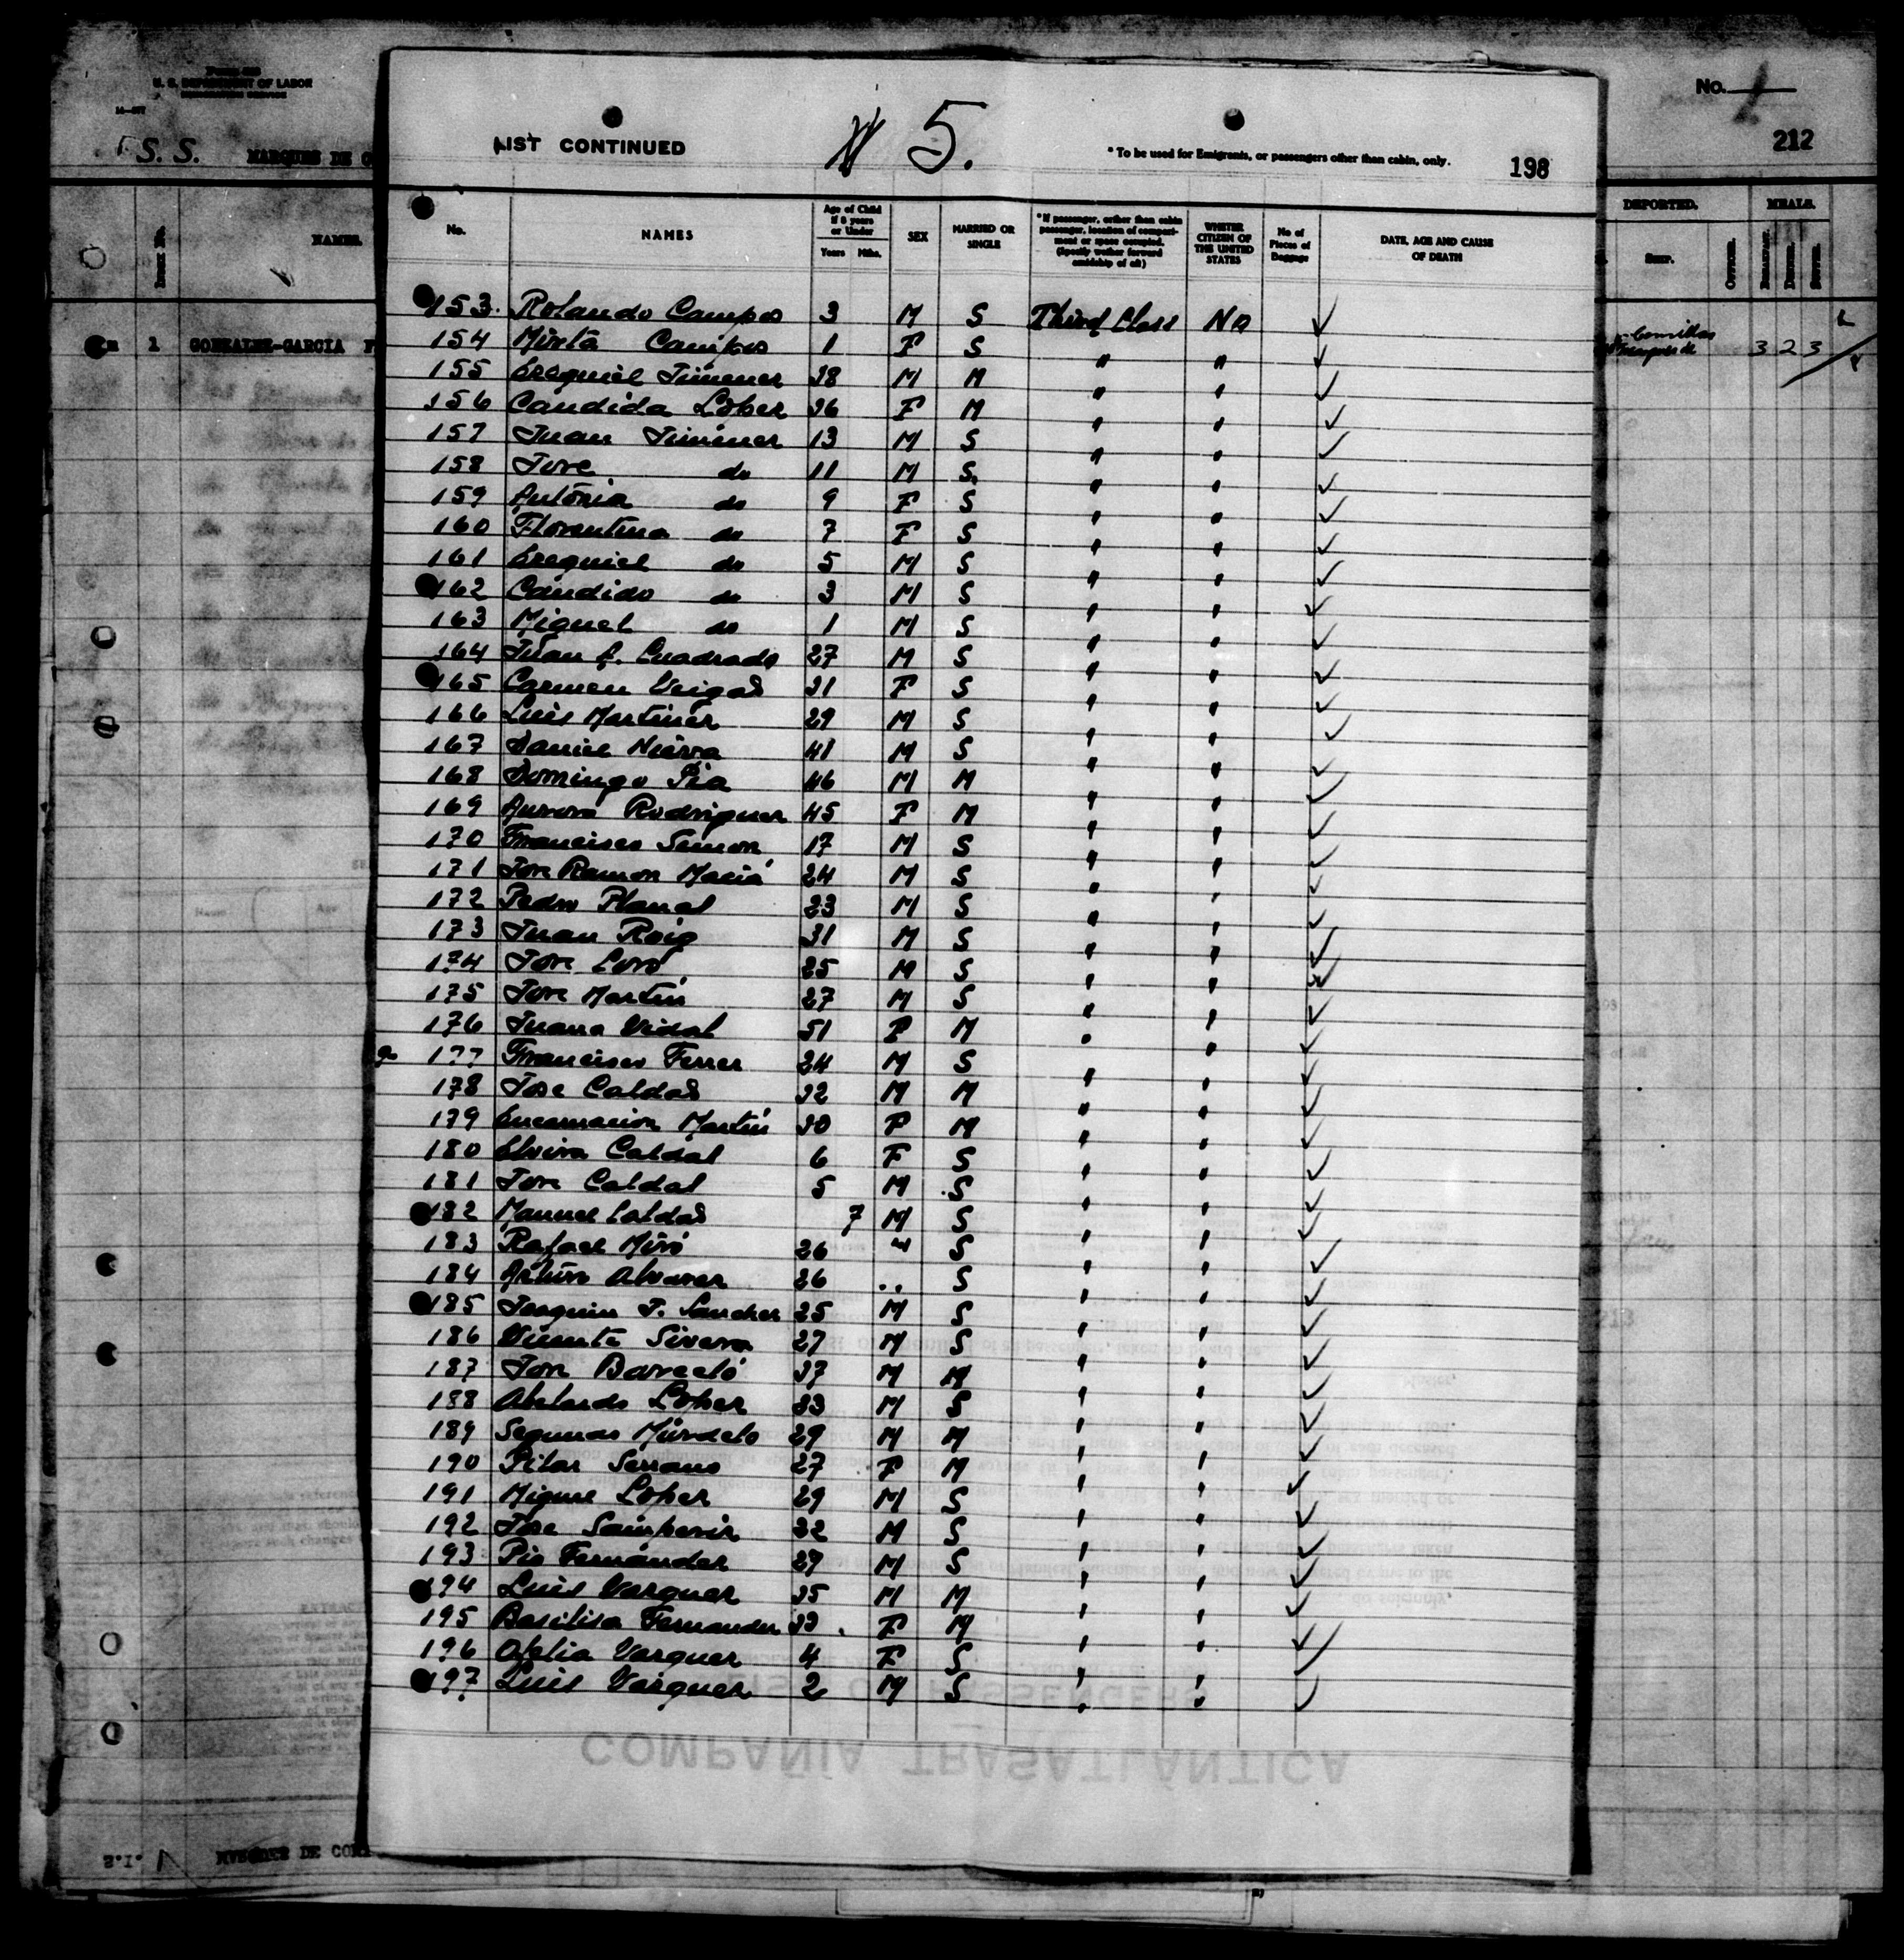 U. S. DEPARTMENT OF LABOR
No.
212
S. S. MARQUES DE C
NAMES.
DEPORTED. MEALS.
1 GONZALEZ-GARCIA F
3 2 3
LIST CONTINUED
5.
* To be used for Emigrants, or passengers other than cabin, only.
198
No. NAMES Age of Child if 8 years or Under Years Mths. SEX MARRIED OR SINGLE * If passenger, orther than cabin passenger, location of compartment or space occupied. (Specify wether forward amidship of aft) WHETER CITIZEN OF THE UNITED STATES No of Pieces of Baggage DATE, AGE AND CAUSE OF DEATH
153. Rolando Campos 3 M S Third Class No ✓
154 Mirta Campos 1 F S " " ✓
155 Ezequiel Jimenez 38 M M " " ✓
156 Candida Lopez 36 F M " " ✓
157 Juan Jimenez 13 M S " " ✓
158 Jose do 11 M S. " " ✓
159 Antonia do 9 F S " " ✓
160 Florentina do 7 F S " " ✓
161 Ezequiel do 5 M S " " ✓
162 Candido do 3 M S " " ✓
163 Miguel do 1 M S " " ✓
164 Juan C. Cuadrado 27 M S " " ✓
165 Carmen Veigas 31 F S " " ✓
166 Luis Martinez 29 M S " " ✓
167 Daniel 41 M S " " ✓
168 Domingo Pia 46 M M " " ✓
169 Aurora Rodriguez 45 F M " " ✓
170 Francisco Simon 17 M S " " ✓
171 Jose Ramon Maciá 24 M S " " ✓
172 Pedro Planas 23 M S " " ✓
173 Juan Roig 31 M S " " ✓
174 Jose 25 M S " " ✓
175 Jose Martin 27 M S " " ✓
176 Juana Vidal 51 F M " " ✓
177 Francisco Ferrer 24 M S " " ✓
178 Jose Caldas 32 M M " " ✓
179 Encarnacion Martin 30 F M " " ✓
180 Elvira Caldas 6 F S " " ✓
181 Jose Caldas 5 M S " " ✓
182 Manuel Caldas 7 M S " " ✓
183 Rafael Miró 26 " S " " ✓
184 Arturo Alvarez 26 " S " " ✓
185 Joaquin J. Sanchez 25 M S " " ✓
186 Vicente Sivera 27 M S " " ✓
187 Jose Barceló 37 M M " " ✓
188 Abelardo Lopez 33 M S " " ✓
189 Segundo Murdelo 29 M M " " ✓
190 Pilar Serrano 27 F M " " ✓
191 Miguel Lopez 29 M S " " ✓
192 Jose Samperiz 32 M S " " ✓
193 Pio Fernandez 29 M S " " ✓
194 Luis Vazquez 35 M M " " ✓
195 Basilisa Fernandez 33 F M " " ✓
196 Ofelia Vazquez 4 F S " " ✓
197 Luis Vazquez 2 M S " " ✓
COMPAÑÍA TRASATLÁNTICA